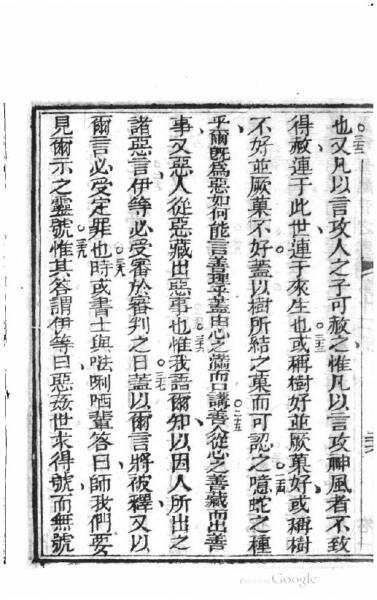 也三二又凡以言攻人之子可赦之惟凡以言攻神風者不致
得赦連于此世連于來生也三三或稱樹好並厥菓好或稱樹
不好並厥菓不好蓋以樹所結之菓而可認之三四噫蛇之種
乎爾既為惡如何能言善理乎蓋由心之滿而口講三五善人從心之善藏而出善
事又惡人從惡藏出惡事也三六惟我語爾知以因人所出之
諸惡言伊等必受審於審判之日三七蓋以爾言將被釋又以
爾言必受定罪也三八時或書士與唎哂輩答曰師我們要
見爾示之靈號三九惟其答謂伊等曰惡姦世求得號而無號
Google